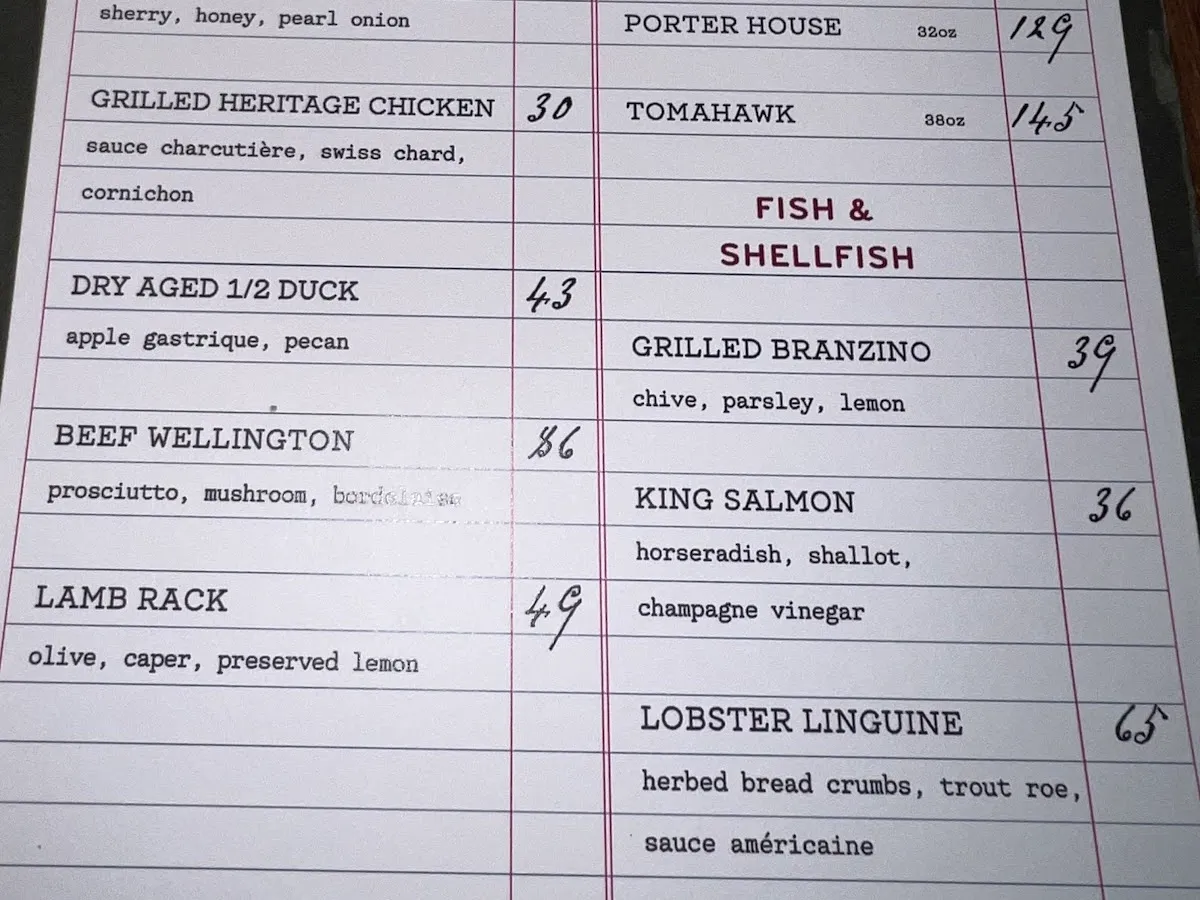 sherry, honey, pearl onion
GRILLED HERITAGE CHICKEN 30
sauce charcutière, swiss chard,
cornichon
DRY AGED 1/2 DUCK 43
apple gastrique, pecan
BEEF WELLINGTON 86
prosciutto, mushroom, bordelaise
LAMB RACK 49
olive, caper, preserved lemon
PORTER HOUSE 32oz 129
TOMAHAWK 38oz 145
FISH &
SHELLFISH
GRILLED BRANZINO 39
chive, parsley, lemon
KING SALMON 36
horseradish, shallot,
champagne vinegar
LOBSTER LINGUINE 65
herbed bread crumbs, trout roe,
sauce américaine